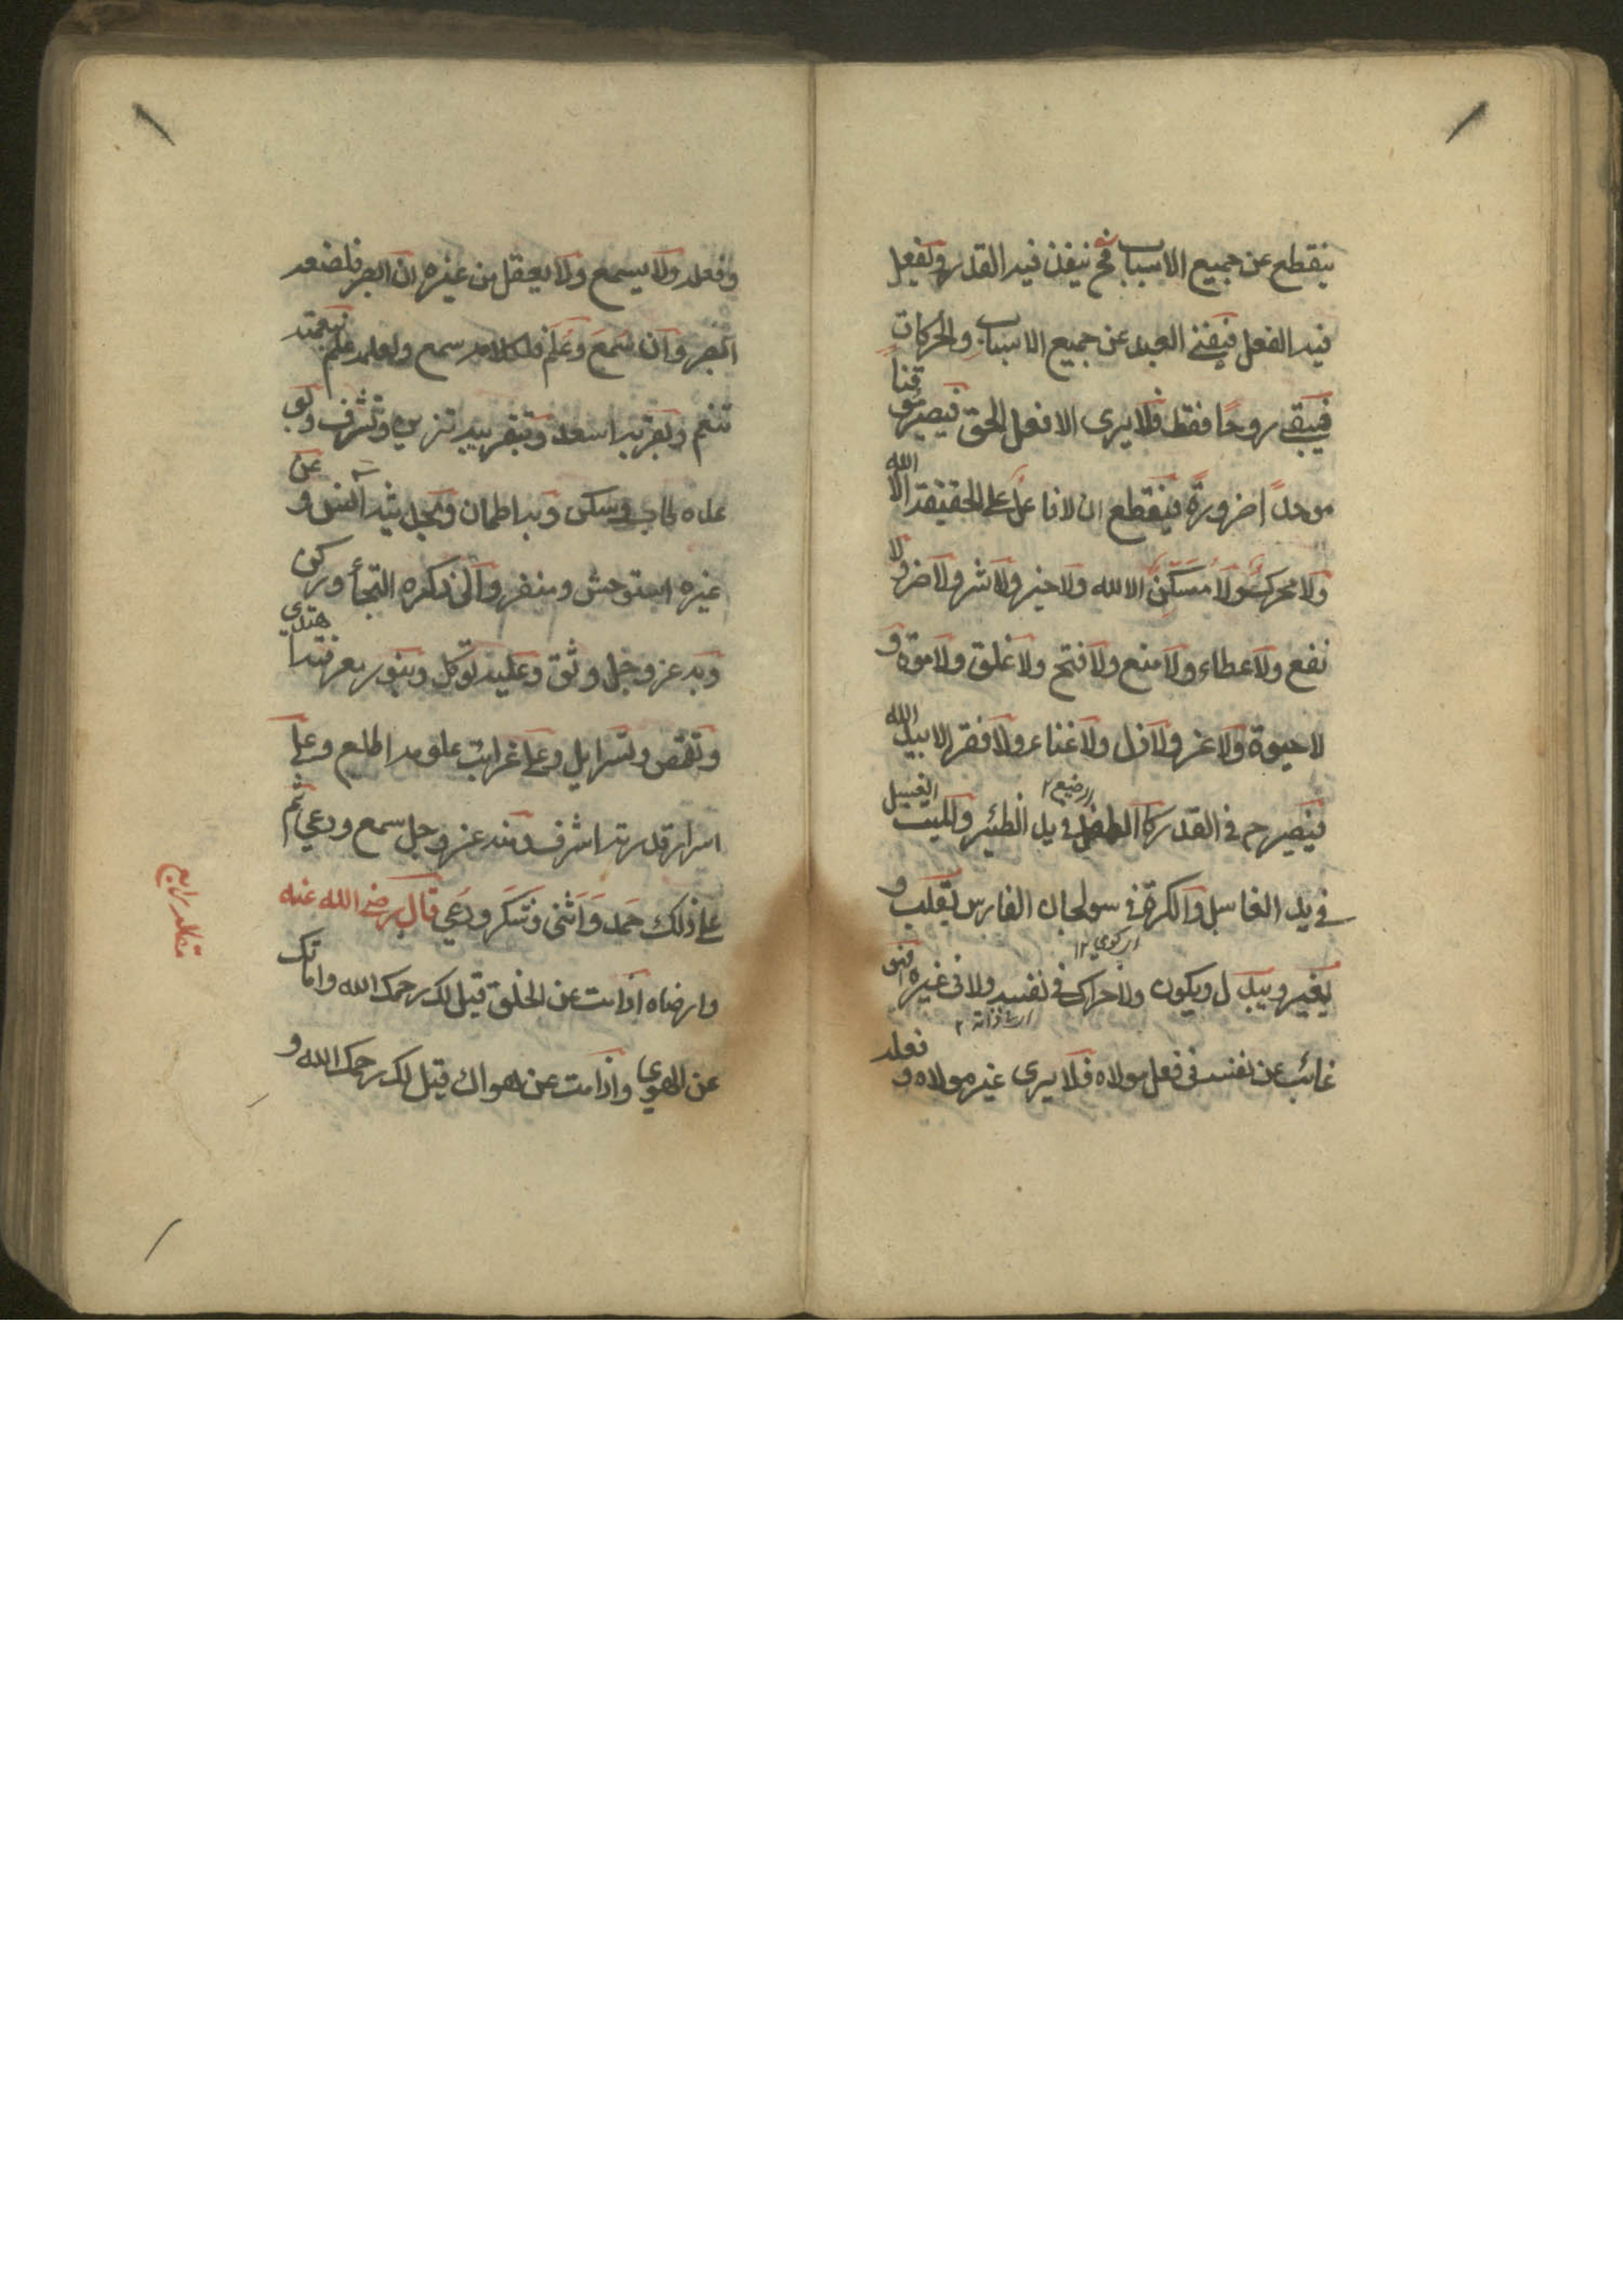 ينقطع عن جميع الاسباب فح ينفذ فيه القدر ويفعل
فيه الفعل فيفنى العبد عن جميع الاسباب والحركات
فيبقى روحا فقط فلا يرى الا فعل الحق فيصير موقنا
موحدا ضرورة فيقطع ان لا فاعل على الحقيقة الا الله
ولا محرك ولا مسكن الا الله ولا خير ولا شر ولا ضر ولا
نفع ولا عطاء ولا منع ولا فتح ولا غلق ولا موة و
لا حيوة ولا عز ولا ذل ولا غناء ولا فقر الا بيد الله
فيصير ح في القدر كالطفل الرضيع في يد الظئير والميت الغسيل
في يد الغاسل والكرة في سولجان الفارس يقلب و
يغير ويبدل ويكون ولا حراك في نفسه ولا في غيره فهو
غائب عن نفسه في فعل مولاه فلا يرى غير مولاه و فعله
وفعله ولا يسمع ولا يعقل من غيره ان ابصر فلصنعه
ابصر وان سمع وعلم فلكلامه سمع ولعلمه علم بنعمته
تنعم وبقربه اسعد وبتقريبه تزين وتشرف وبو
عده طاب وسكن وبه اطمان وبحديثه انس وعن
غيره استوحش ونفر والى ذكره التجأ وركن
وبه عز وجل وثق وعليه توكل وبنور معرفته اهتدى
وتقمص وتسرايل وعلى غرائب علومه اطلع وعلى
اسرار قدرته اشرف ومنه عز وجل سمع ووعي ثم
على ذلك حمد واثنى وشكر ودعي قال رضي الله عنه
وارضاه اذا مت عن الخلق قيل لك رحمك الله واماتك
عن الهوي واذا مت عن هواك قيل لك رحمك الله و
مقاله رابع